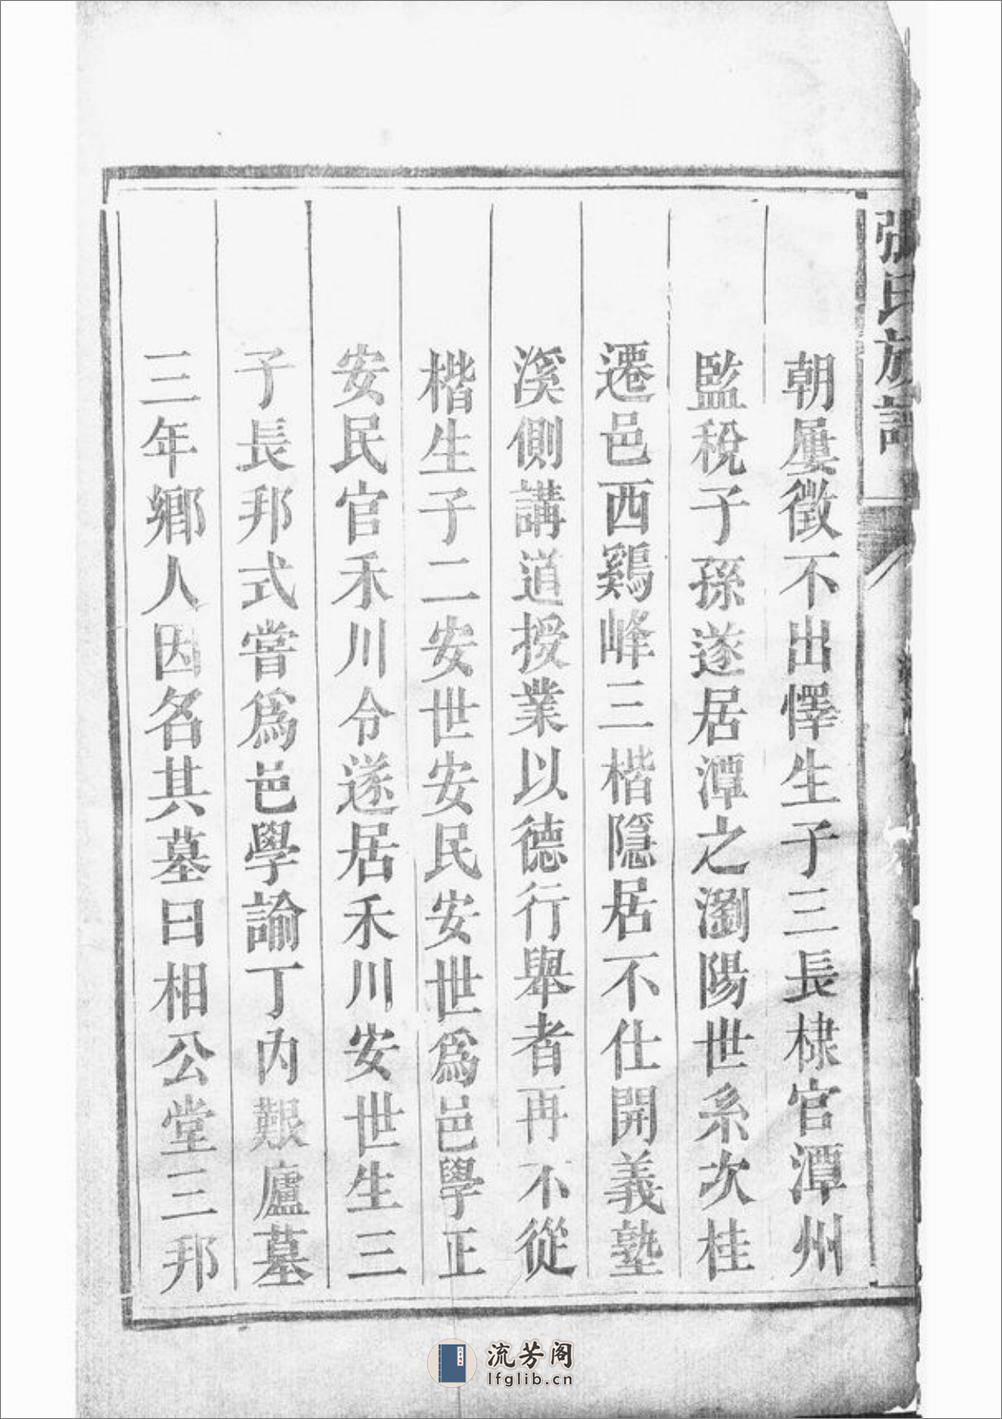 張氏族譜
朝屢徵不出懌生子三長棣官潭州
監稅子孫遂居潭之瀏陽世系次桂
遷邑西鷄峰三楷隱居不仕開義塾
溪側講道授業以德行舉者再不從
楷生子二安世安民安世爲邑學正
安民官禾川令遂居禾川安世生三
子長邦式嘗爲邑學諭丁內艱廬墓
三年鄉人因名其墓曰相公堂二邦
流芳阁
lfglib.cn